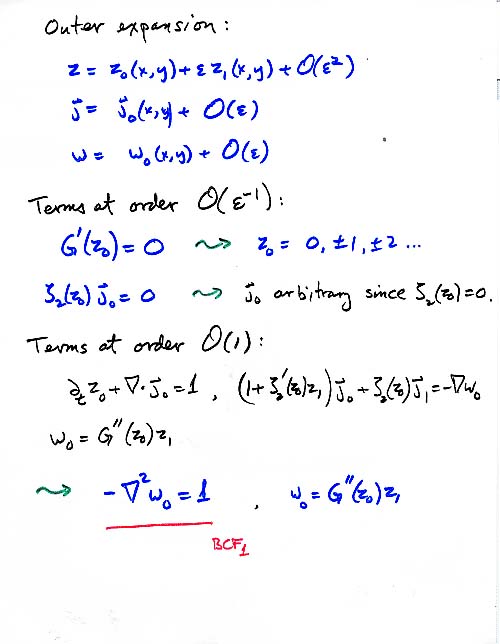 Outer expansion:
z = z₀(x,y) + εz₁(x,y) + O(ε²)
j⃗ = j⃗₀(x,y) + O(ε)
w = w₀(x,y) + O(ε)
Terms at order O(ε⁻¹):
G'(z₀) = 0 ⇝ z₀ = 0, ±1, ±2 ...
ζ₂(z₀) j⃗₀ = 0 ⇝ j⃗₀ arbitrary since ζ₂(z₀)=0.
Terms at order O(1):
∂ₜz₀ + ∇·j⃗₀ = 1 , (1+ζ₂'(z₀)z₁) j⃗₀ + ζ₂(z₀) j⃗₁ = -∇w₀
w₀ = G''(z₀) z₁
⇝ -∇²w₀ = 1 , w₀ = G''(z₀) z₁
BCF₁